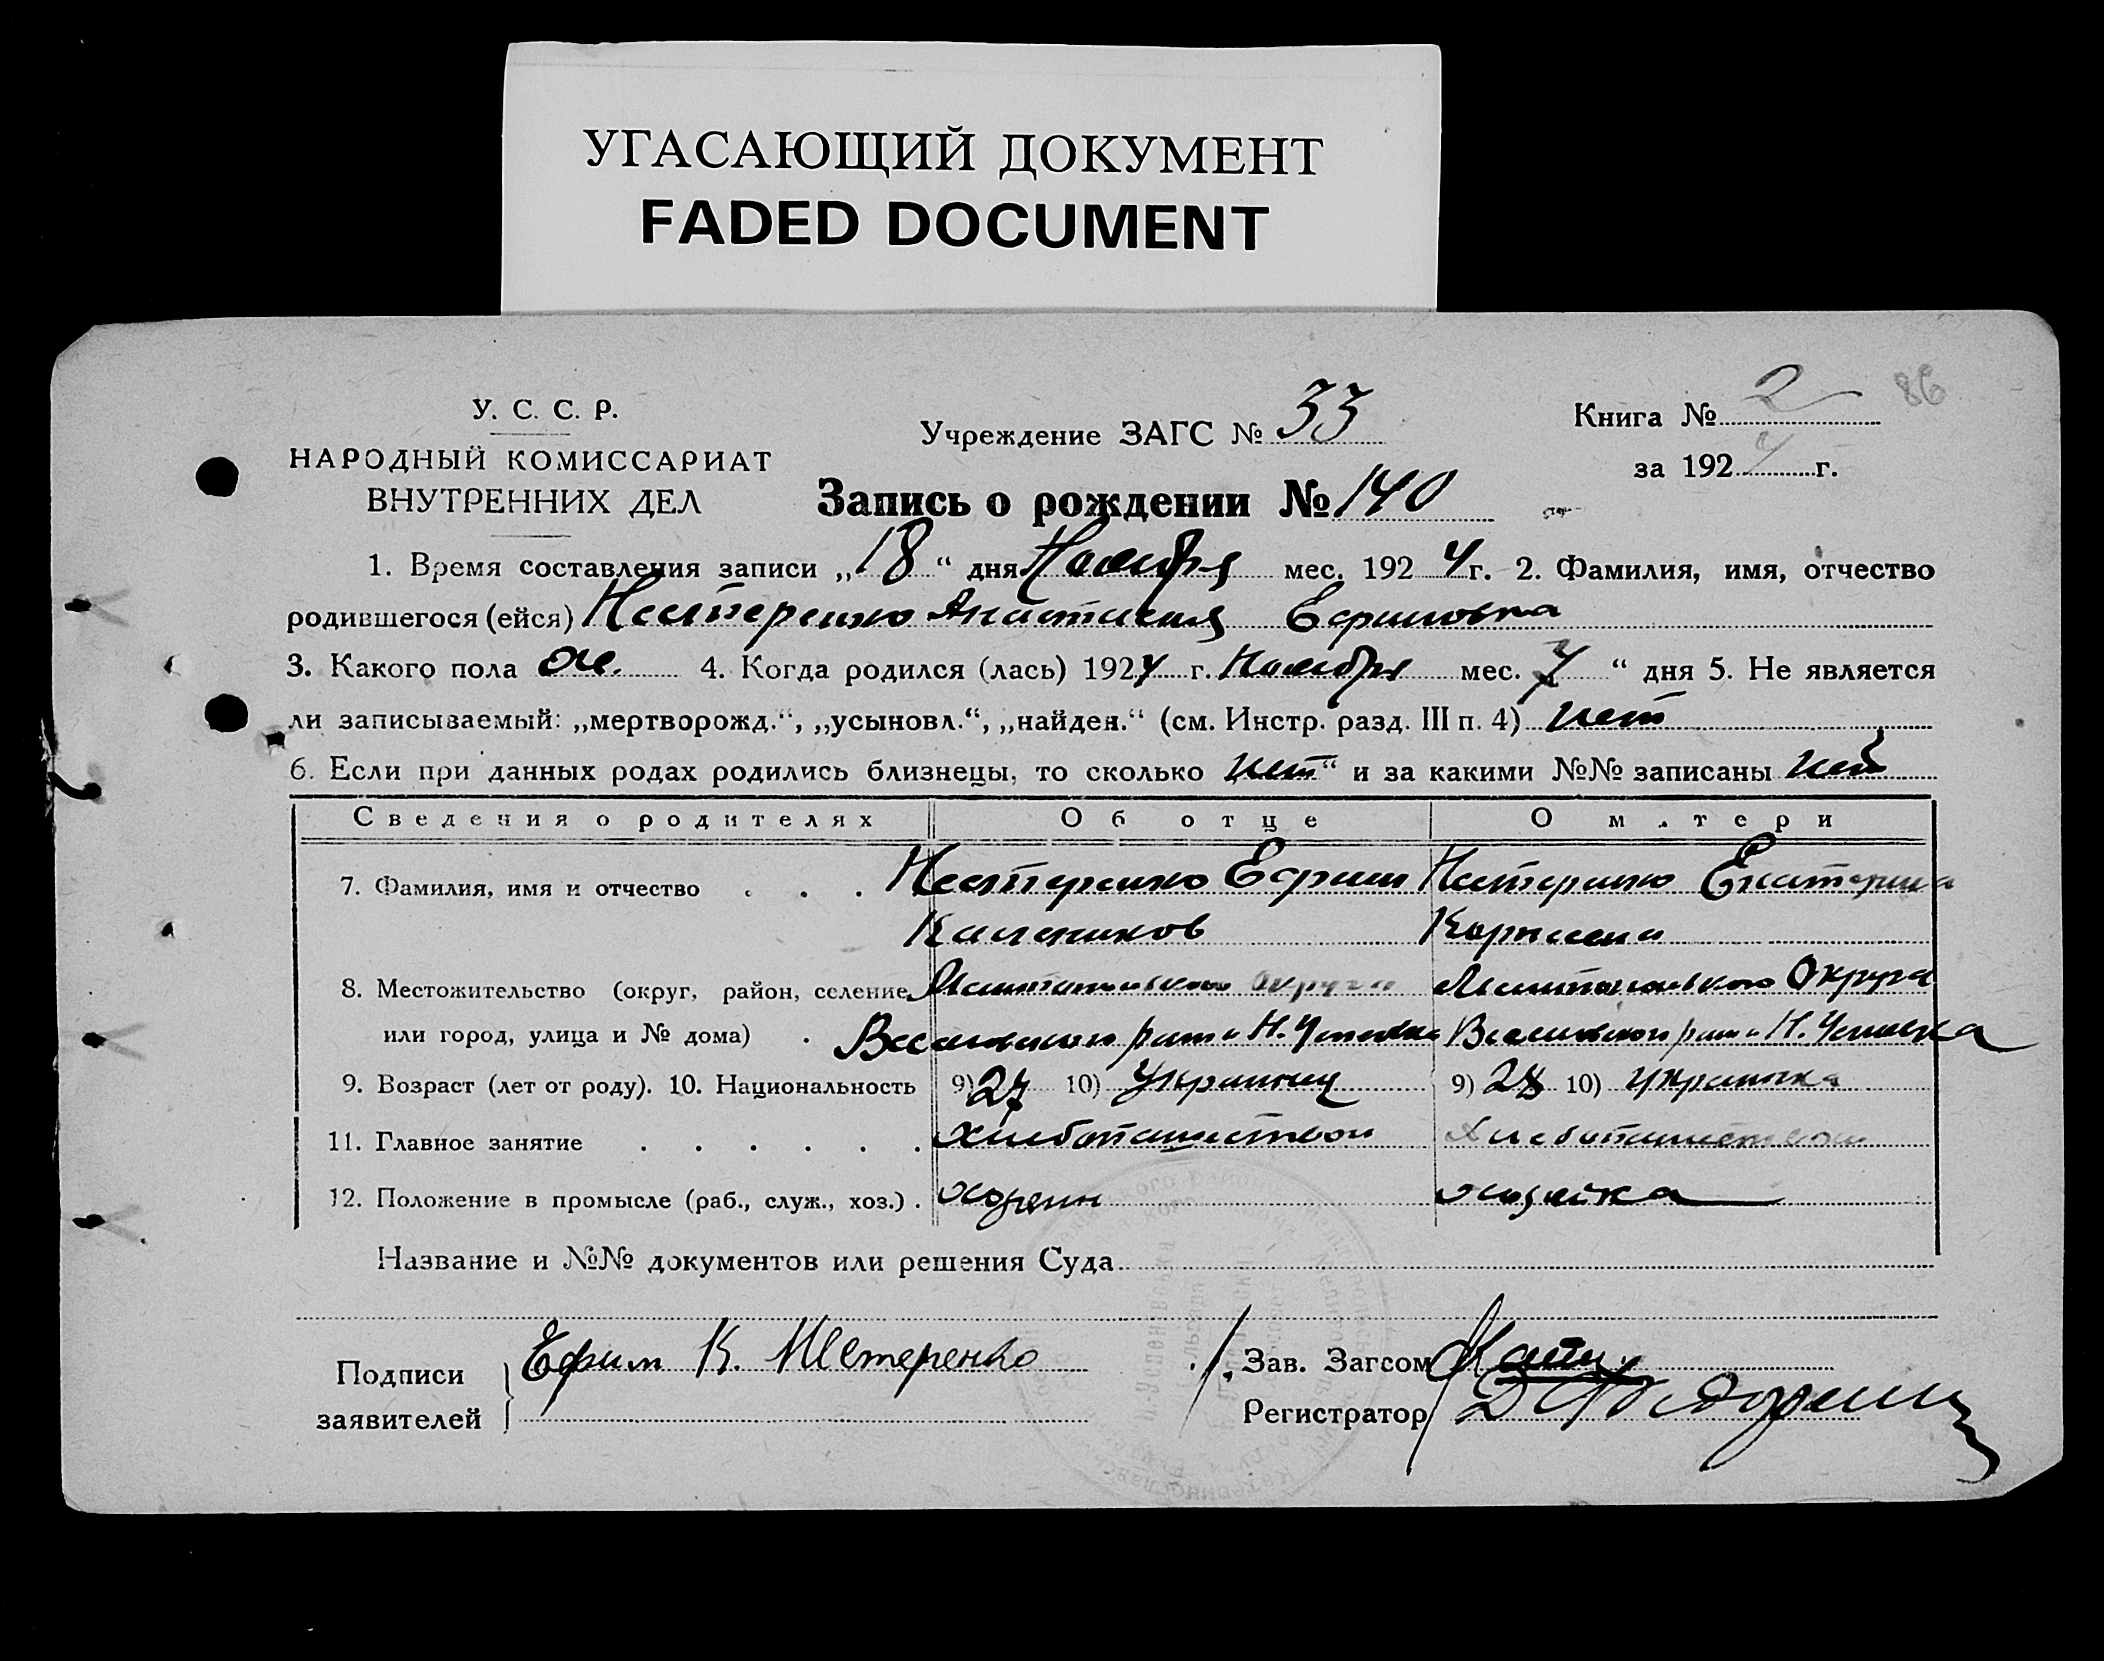 УГАСАЮЩИЙ ДОКУМЕНТ
FADED DOCUMENT
У. С. С. Р.
НАРОДНЫЙ КОМИССАРИАТ
ВНУТРЕННИХ ДЕЛ
Учреждение ЗАГС № 33
Книга № 2
86
за 1924 г.
Запись о рождении № 140
1. Время составления записи „18“ дня Ноября мес. 1924 г. 2. Фамилия, имя, отчество
родившегося (ейся) Нестеренко Анастасия Ефимовна
3. Какого пола 4. Когда родился (лась) 1924 г. Ноября мес. 7 “ дня 5. Не является
ли записываемый: „мертворожд.“, „усыновл.“, „найден.“ (см. Инстр. разд. III п. 4) нет
6. Если при данных родах родились близнецы, то сколько нет “ и за какими №№ записаны нет
Сведения о родителях Об отце О матери
7. Фамилия, имя и отчество . . . Нестеренко Ефим Нестеренко Екатерина
8. Местожительство (округ, район, селение Округа Округа
или город, улица и № дома) .
9. Возраст (лет от роду). 10. Национальность 9) 27 10) Украинец 9) 28 10) украинка
11. Главное занятие . . . . . . Хлебопашеством Хлебопашеством
12. Положение в промысле (раб., служ., хоз.) . хозяин хозяйка
Название и №№ документов или решения Суда
Подписи заявителей Ефим К. Нестеренко
Зав. Загсом
Регистратор